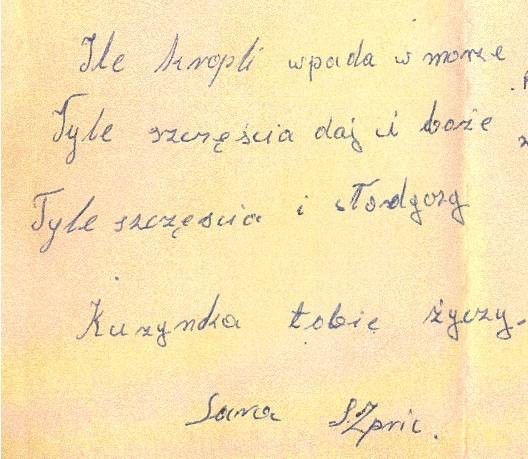 Ile kropli wpada w morze
Tyle szczęścia daj ci boże
Tyle szczęścia i słodyczy
Kuzynka tobie życzy.
Sara Szpric.